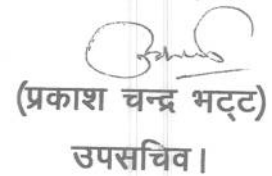 (प्रकाश चन्द्र भट्ट)
उपसचिव।